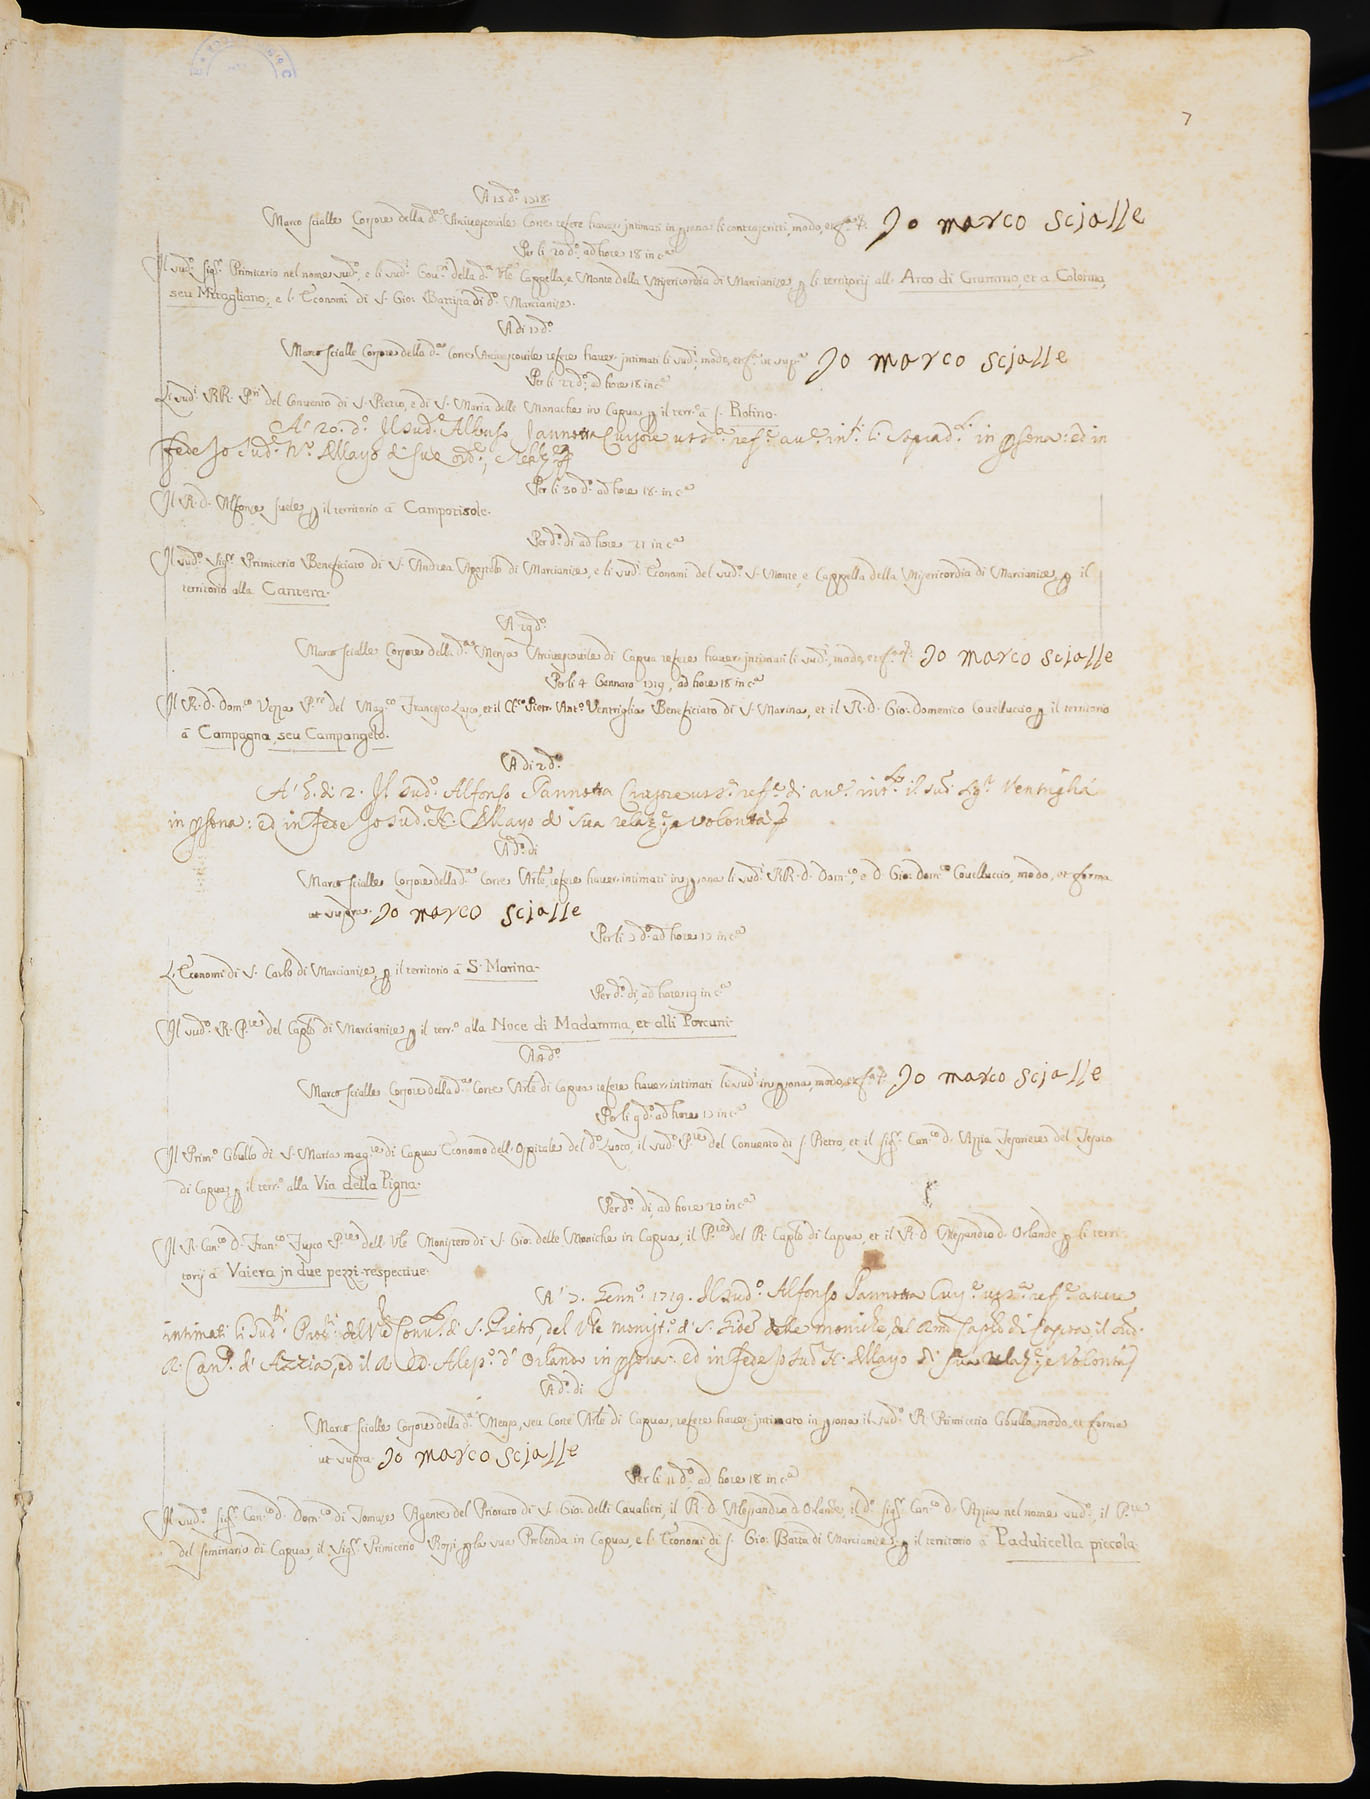 7
A 15 d.º 1718.
Marco Scialle Corsore della d.ª Arcivescovile Corte refere haver intimati in p̱sona li controscritti, modo, et f.ª &.ª Io marco scjalle
Per li 20 d.º, ad hore 18 in c.ª
Il sud.º Sig.r Primicerio nel nome sud.º, e li sud.i Gov.ri della d.ª Ven.le Cappella, e Monte della Misericordia di Marcianise, p̱ li territorij all' Arco di Grummo, et a Colonna,
seu Miragliano, e li Economi di S. Gio: Battista di d.º Marcianise.
A di 17 d.º
Marco Scialle Corsore della d.ª Corte Arcivescovile refere haver intimati li sud.i, modo, et f.ª ut sup.ª Io marco scjalle
Per li 22 d.º, ad hore 18 in c.ª
Li sud.i RR. P.ri del Convento di S. Pietro, e di S. Maria delle Monache in Capua p̱ il terr.º à S. Rotino.
A' 20. d.º Il sud.º Alfonso Jannotta Cursore ref.e av.e int.i li in p̱sona: ed in
fede Io sud.º N.r Ellayo di sua
Per li 30 d.º ad hore 18. in c.ª
Il R. D. Alfonse p̱ il territorio à Camporisole.
Per d.º di ad hore 21 in c.ª
Il sud.º Sig.r Primicerio Beneficiato di S. Andrea Apostolo di Marcianise, e li sud.i Economi del sud.º S. Monte, e Cappella della Misericordia di Marcianise, p̱ il
territorio alla Cantera.
A 29 d.º
Marco Scialle Corsore della d.ª Mensa Arcivescovile di Capua refere haver intimati li sud.i, modo, et f.ª &.ª Io marco scjalle
Per li 4 Gennaro 1719, ad hore 18 in c.ª
Il R. D. Dom.co P.re del Mag.co Francesco et il Cl.co Pietr' Ant.º Ventriglia Beneficiato di S. Marina, et il R. D. Gio: Domenico Covelluccio p̱ il territorio
à Campagna, seu Campangelo.
A di 2 d.º
A' d. di 2. Il sud.º Alfonso Jannotta Cursore ref.e di av.e int.to il sud. Ventriglia
in p̱sona: ed in fede Io sud. N. Ellayo di sua relaz.e e volontà
A d.º di
Marco Scialle Corsore della d.ª Corte Arc.le, refere haver intimati in p̱sona li sud.i RR. D. Dom.co, e D. Gio: Dom.co Covelluccio, modo, et forma
ut supra. Io marco scjalle
Per li 7 d.º ad hore 17 in c.ª
Li Economi di S. Carlo di Marcianise, p̱ il territorio à S. Marina.
Per d.º di, ad hore 19 in c.ª
Il sud.º R. P.re del Cap.lo di Marcianise p̱ il terr.º alla Noce di Madamma, et alli Porcini.
A 4 d.º
Marco Scialle Corsore della d.ª Corte Arc.le di Capua refere haver intimati li sud.i in p̱sona, modo, et f.ª &.ª Io marco scjalle
Per li 9 d.º ad hore 17 in c.ª
Il Prim.º Cbullo di S. Maria mag.re di Capua Economo dell' Ospitale del d.º Luoco, il sud.º P.re del Convento di S. Pietro, et il Sig.r Can.co D. Azzia Tesoriere del Tesoro
di Capua, p̱ il terr.º alla Via della Pigna.
Per d.º di, ad hore 20 in c.ª
Il R. Can.co D. Fran.co P.re dell' V.le Monistero di S. Gio: delle Moniche in Capua, il P.re del R. Cap.lo di Capua, et il R. D. Alessandro d' Orlando p̱ li terri-
torij à Vaiera jn due pezzi respective.
A' 7. Genn.º 1719. Il sud.º Alfonso Jannotta Curs.e ref.e avere
intimati li sud.i Proc.i del V.le Conv.to di S. Pietro, del V.le Monist.º di S. Gio: delle moniche, del Cap.lo di Capua, il sud.
R. Can.co d' Azzia, ed il R. D. Aless.º d' Orlando in p̱sona: ed in fede Io sud. N. Ellayo di sua relaz.e e volontà
A d.º di
Marco Scialle Corsore della d.ª Mensa, seu Corte Arc.le di Capua, refere haver intimato in p̱sona il sud.º R. Primicerio Cbullo, modo, et forma
ut supra. Io marco scjalle
Per li 11 d.º, ad hore 18 in c.ª
Il sud.º Sig.r Can.co D. Dom.co di Tomase Agente del Priorato di S. Gio: delli Cavalieri, il R. D. Alessandro d' Orlando, il d.º Sig.r Can.co D. Azzia nel nome sud.º, il P.re
del Seminario di Capua, il Sig.r Primicerio Rossi, p̱ la sua Prebenda in Capua, e li Economi di S. Gio: Batta di Marcianise, p̱ il territorio à Padulicella piccola.